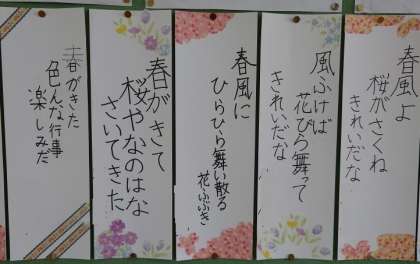 春風よ
桜がさくね
きれいだな
風ふけば
花びら舞って
きれいだな
春風に
ひらひら舞い散る
花ふぶき
春がきて
桜やなのはな
さいてきた
春がきた
色んな行事
楽しみだ